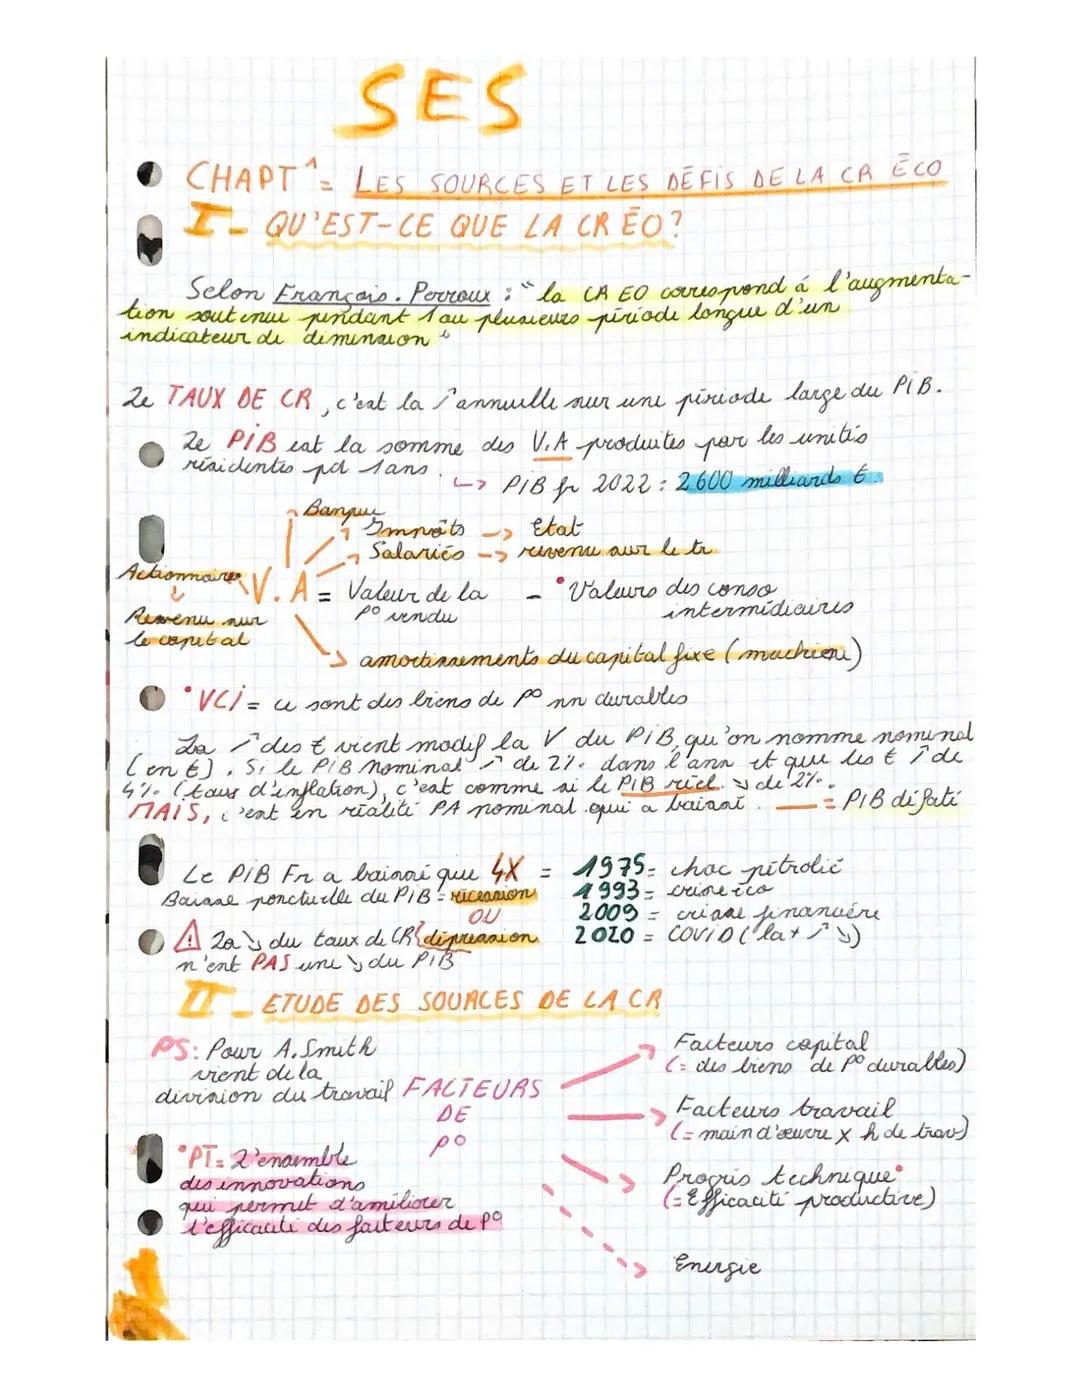 SES
CHAPT 1 = LES SOURCES ET LES DÉFIS DE LA CR ÉCO
I - QU'EST-CE QUE LA CR ÉO?
Selon François. Perroux : " la CR EO correspond á l'augmenta-
tion soutenue pendant 1 ou plusieurs période longue d'un
indicateur de dimension "
Le TAUX DE CR, c'est la ↗ annuelle sur une période large du PiB.
Le PiB est la somme des V.A produites par les unités
résidentes pd 1 ans.
↳ PiB fr 2022 : 2600 milliards €.
Banque
Impôts → Etat
Salariés → revenu sur le tr
Actionnaires
↓
Revenu sur
le capital
V.A = Valeur de la
p° vendu
- • Valeurs des conso
intermédiaires
amortissements du capital fixe (machien)
• VCi = ce sont des biens de p° nn durables
La ↗ des € vient modif la V du PiB, qu'on nomme nominal
(en €). Si le PiB nominal ↗ de 2% dans l'ann et que les € ↗ de
4% (taux d'inflation), c'est comme si le PiB réel ↘ de 2%.
MAIS, c'est en réalité PA nominal qui a baissé. — = PiB défaté
Le PiB Fr a baissé que 4X =
1975 = choc pétrolié
1993 = crise éco
2009 = crisse financière
2020 = COVID (la + ↗ ↘)
Baisse ponctuelle du PiB = récession
OU
dépression
⚠ La ↘ du taux de CR
n'est PAS une ↘ du PiB
II - ETUDE DES SOURCES DE LA CR
PS : Pour A. Smith
vient de la
division du travail
FACTEURS
DE
P°
Facteurs capital
(= des biens de p° durables)
Facteurs travail
(= main d'œuvre x h de trav)
Progrès technique •
(= Efficacité productive)
Energie
• PT = L'ensemble
des innovations
qui permet d'améliorer
l'efficacité des facteurs de p°